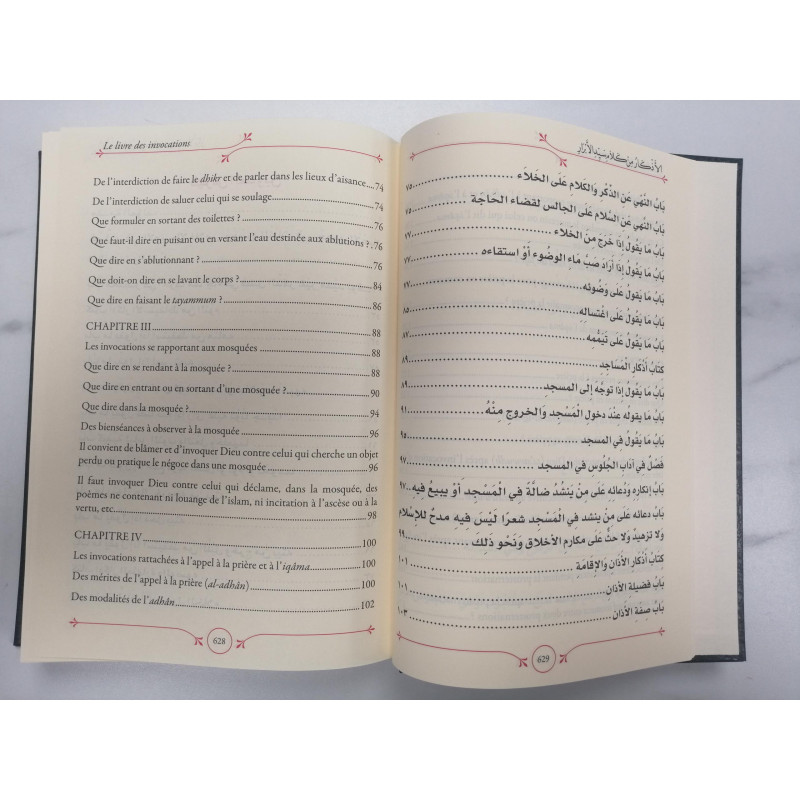 Le livre des invocations
De l'interdiction de faire le dhikr et de parler dans les lieux d'aisance....74
De l'interdiction de saluer celui qui se soulage.................................74
Que formuler en sortant des toilettes ?.................................76
Que faut-il dire en puisant ou en versant l'eau destinée aux ablutions ?.76
Que dire en s'ablutionnant ?.................................76
Que doit-on dire en se lavant le corps ?.................................84
Que dire en faisant le tayammum ?.................................86
CHAPITRE III.................................88
Les invocations se rapportant aux mosquées.................................88
Que dire en se rendant à la mosquée ?.................................88
Que dire en entrant ou en sortant d'une mosquée ?.................................90
Que dire dans la mosquée ?.................................94
Des bienséances à observer à la mosquée.................................96
Il convient de blâmer et d'invoquer Dieu contre celui qui cherche un objet
perdu ou pratique le négoce dans une mosquée.................................96
Il faut invoquer Dieu contre celui qui déclame, dans la mosquée, des
poèmes ne contenant ni louange de l'islam, ni incitation à l'ascèse ou à la
vertu, etc.................................98
CHAPITRE IV.................................100
Les invocations rattachées à l'appel à la prière et à l'iqâma.................100
Des mérites de l'appel à la prière (al-adhân).................................100
Des modalités de l'adhân.................................102
628
الأذكار من كلام سيد الأبرار
بَابُ النَّهْيِ عَنِ الذِّكْرِ وَالكَلَامِ عَلَى الخَلَاءِ.................................٧٥
بَابُ النَّهْيِ عَنِ السَّلَامِ عَلَى الجَالِسِ لِقَضَاءِ الحَاجَةِ.................................٧٥
بَابُ مَا يَقُولُ إِذَا خَرَجَ مِنَ الخَلَاءِ.................................٧٧
بَابُ مَا يَقُولُ إِذَا أَرَادَ صَبَّ مَاءِ الوَضُوءِ أَوْ استقاءه.................................٧٧
بَابُ مَا يَقُولُ عَلَى وَضُوئِهِ.................................٧٧
بَابُ مَا يَقُولُ عَلَى اغتساله.................................٨٥
بَابُ مَا يَقُولُ عَلَى تَيَمُّمِهِ.................................٨٧
كتاب أذكار المساجد.................................٨٩
بَابُ مَا يَقُولُ إِذَا تَوَجَّهَ إِلَى المسجد.................................٨٩
بَابُ مَا يقوله عِنْدَ دخولِ الْمَسْجِد وَالخروجِ مِنْهُ.................................٩١
بَابُ مَا يَقُولُ فِي المسجد.................................٩٥
فَصْلٌ فِي آدَابِ الجُلُوسِ فِي المسجد.................................٩٧
بَابُ إنكارِهِ وَدُعائِهِ عَلَى مِنْ ينشُدُ ضالَّةً فِي الْمَسْجِدِ أَوْ يبيعُ فِيهِ..٩٧
بَابُ دعائه عَلَى مَن ينشد فِي الْمَسْجِد شعرًا لَيْسَ فِيهِ مدحٌ للإِسْلَام
ولا تزهيدٌ وَلَا حثٌّ عَلَى مكارم الأخلاق وَنَحْو ذَلِكَ.................................٩٩
كتابُ أذكارِ الأَذانِ والإِقامَةِ.................................١٠١
بابُ فضيلة الأذان.................................١٠١
بابُ صِفَةِ الأَذان.................................١٠٣
629